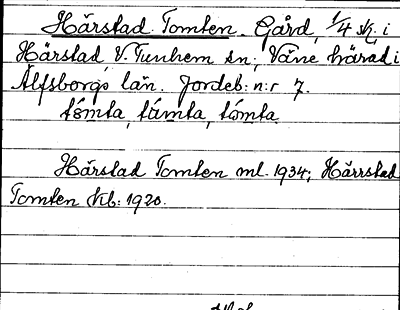 Hårstad Tomten. Gård, 1/4 sk. i
Hårstad V. Tunhem sn; Väne härad i
Älfsborgs län. Jordeb: n:r 7.
tómta, támta, tómta
Hårstad Tomten ml. 1934; Hårrstad
Tomten kb: 1920.